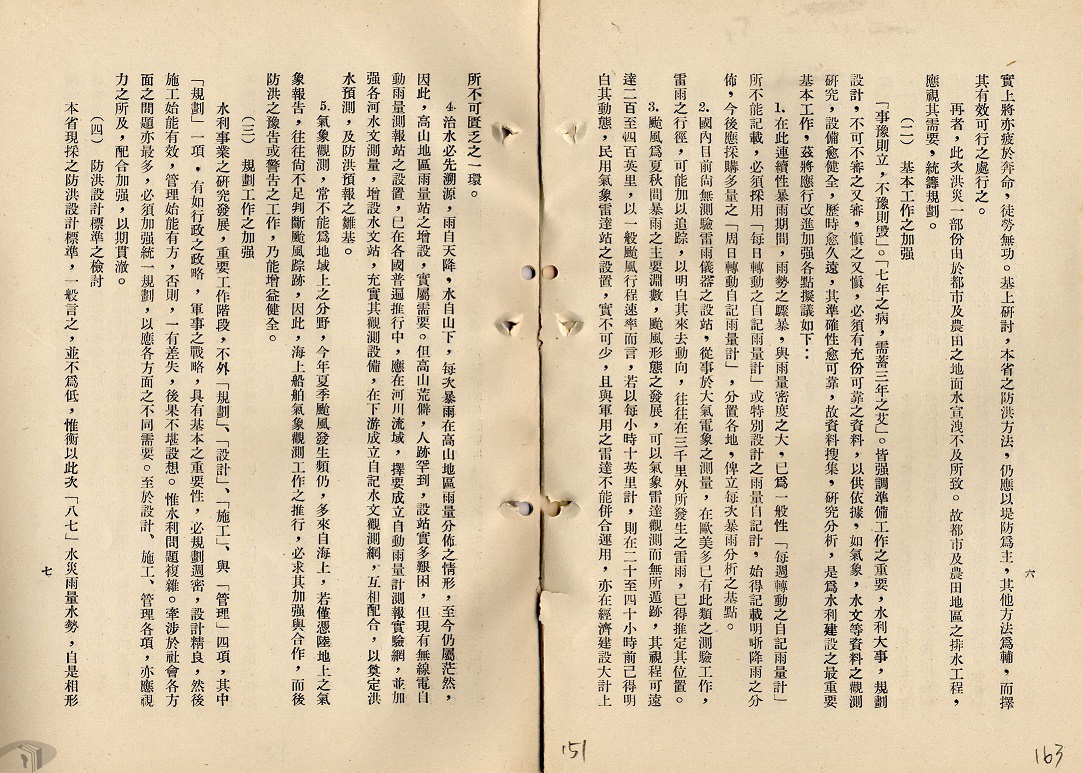 實上將亦疲於奔命,徒勞無功。基上研討,本省之防洪方法,仍應以堤防爲主,其他方法爲輔,而擇
其有效可行之處行之。
再者,此次洪災一部份由於都市及農田之地面水宣洩不及所致。故都市及農田地區之排水工程,
應視其需要,統籌規劃。
(二) 基本工作之加强
「事豫則立,不豫則毀」。「七年之病,需蓄三年之艾」。皆强調準備工作之重要,水利大事,規劃
設計,不可不審之又審,愼之又愼,必須有充份可靠之資料,以供依據,如氣象,水文等資料之觀測
研究,設備愈健全,歷時愈久遠,其準確性愈可靠,故資料搜集,研究分析,是爲水利建設之最重要
基本工作,茲將應行改進加强各點擬議如下:
1.在此連續性暴雨期間,雨勢之驟暴,與雨量密度之大,已爲一般性「每週轉動之自記雨量計」
所不能記載,必須採用「每日轉動之自記雨量計」或特別設計之雨量自記計,始得記載明晰降雨之分
佈,今後應採購多量之「周日轉動自記雨量計」,分置各地,俾立每次暴雨分析之基點。
2.國內目前尙無測驗雷雨儀器之設站,從事於大氣電象之測量,在歐美多已有此類之測驗工作,
雷雨之行徑,可能加以追踪,以明白其來去動向,往往在三千里外所發生之雷雨,已得推定其位置。
3.颱風爲夏秋間暴雨之主要淵數,颱風形態之發展,可以氣象雷達觀測而無所遁跡,其視程可遠
達二百至四百英里,以一般颱風行程速率而言,若以每小時十英里計,則在二十至四十小時前已得明
白其動態,民用氣象雷達站之設置,實不可少,且與軍用之雷達不能併合運用,亦在經濟建設大計上
六
163
151
所不可匱乏之一環。
4.治水必先溯源,雨自天降,水自山下,每次暴雨在高山地區雨量分佈之情形,至今仍屬茫然,
因此,高山地區雨量站之增設,實屬需要。但高山荒僻,人跡罕到,設站實多艱困,但現有無線電自
動雨量測報站之設置,已在各國普遍推行中,應在河川流域,擇要成立自動雨量計測報實驗網,並加
强各河水文測量,增設水文站,充實其觀測設備,在下游成立自記水文觀測網,互相配合,以奠定洪
水預測,及防洪預報之雛基。
5.氣象觀測,常不能爲地域上之分野,今年夏季颱風發生頻仍,多來自海上,若僅憑陸地上之氣
象報告,往往尙不足判斷颱風踪跡,因此,海上船舶氣象觀測工作之推行,必求其加强與合作,而後
防洪之豫告或警告之工作,乃能增益健全。
(三) 規劃工作之加强
水利事業之研究發展,重要工作階段,不外「規劃」、「設計」、「施工」、與「管理」四項,其中
「規劃」一項,有如行政之政略,軍事之戰略,具有基本之重要性,必規劃週密,設計精良,然後
施工始能有效,管理始能有方,否則,一有差失,後果不堪設想。惟水利問題複雜。牽涉於社會各方
面之問題亦最多,必須加强統一規劃,以應各方面之不同需要。至於設計、施工、管理各項,亦應視
力之所及,配合加强,以期貫澈。
(四) 防洪設計標準之檢討
本省現採之防洪設計標準,一般言之,並不爲低,惟衡以此次「八七」水災雨量水勢,自是相形
七